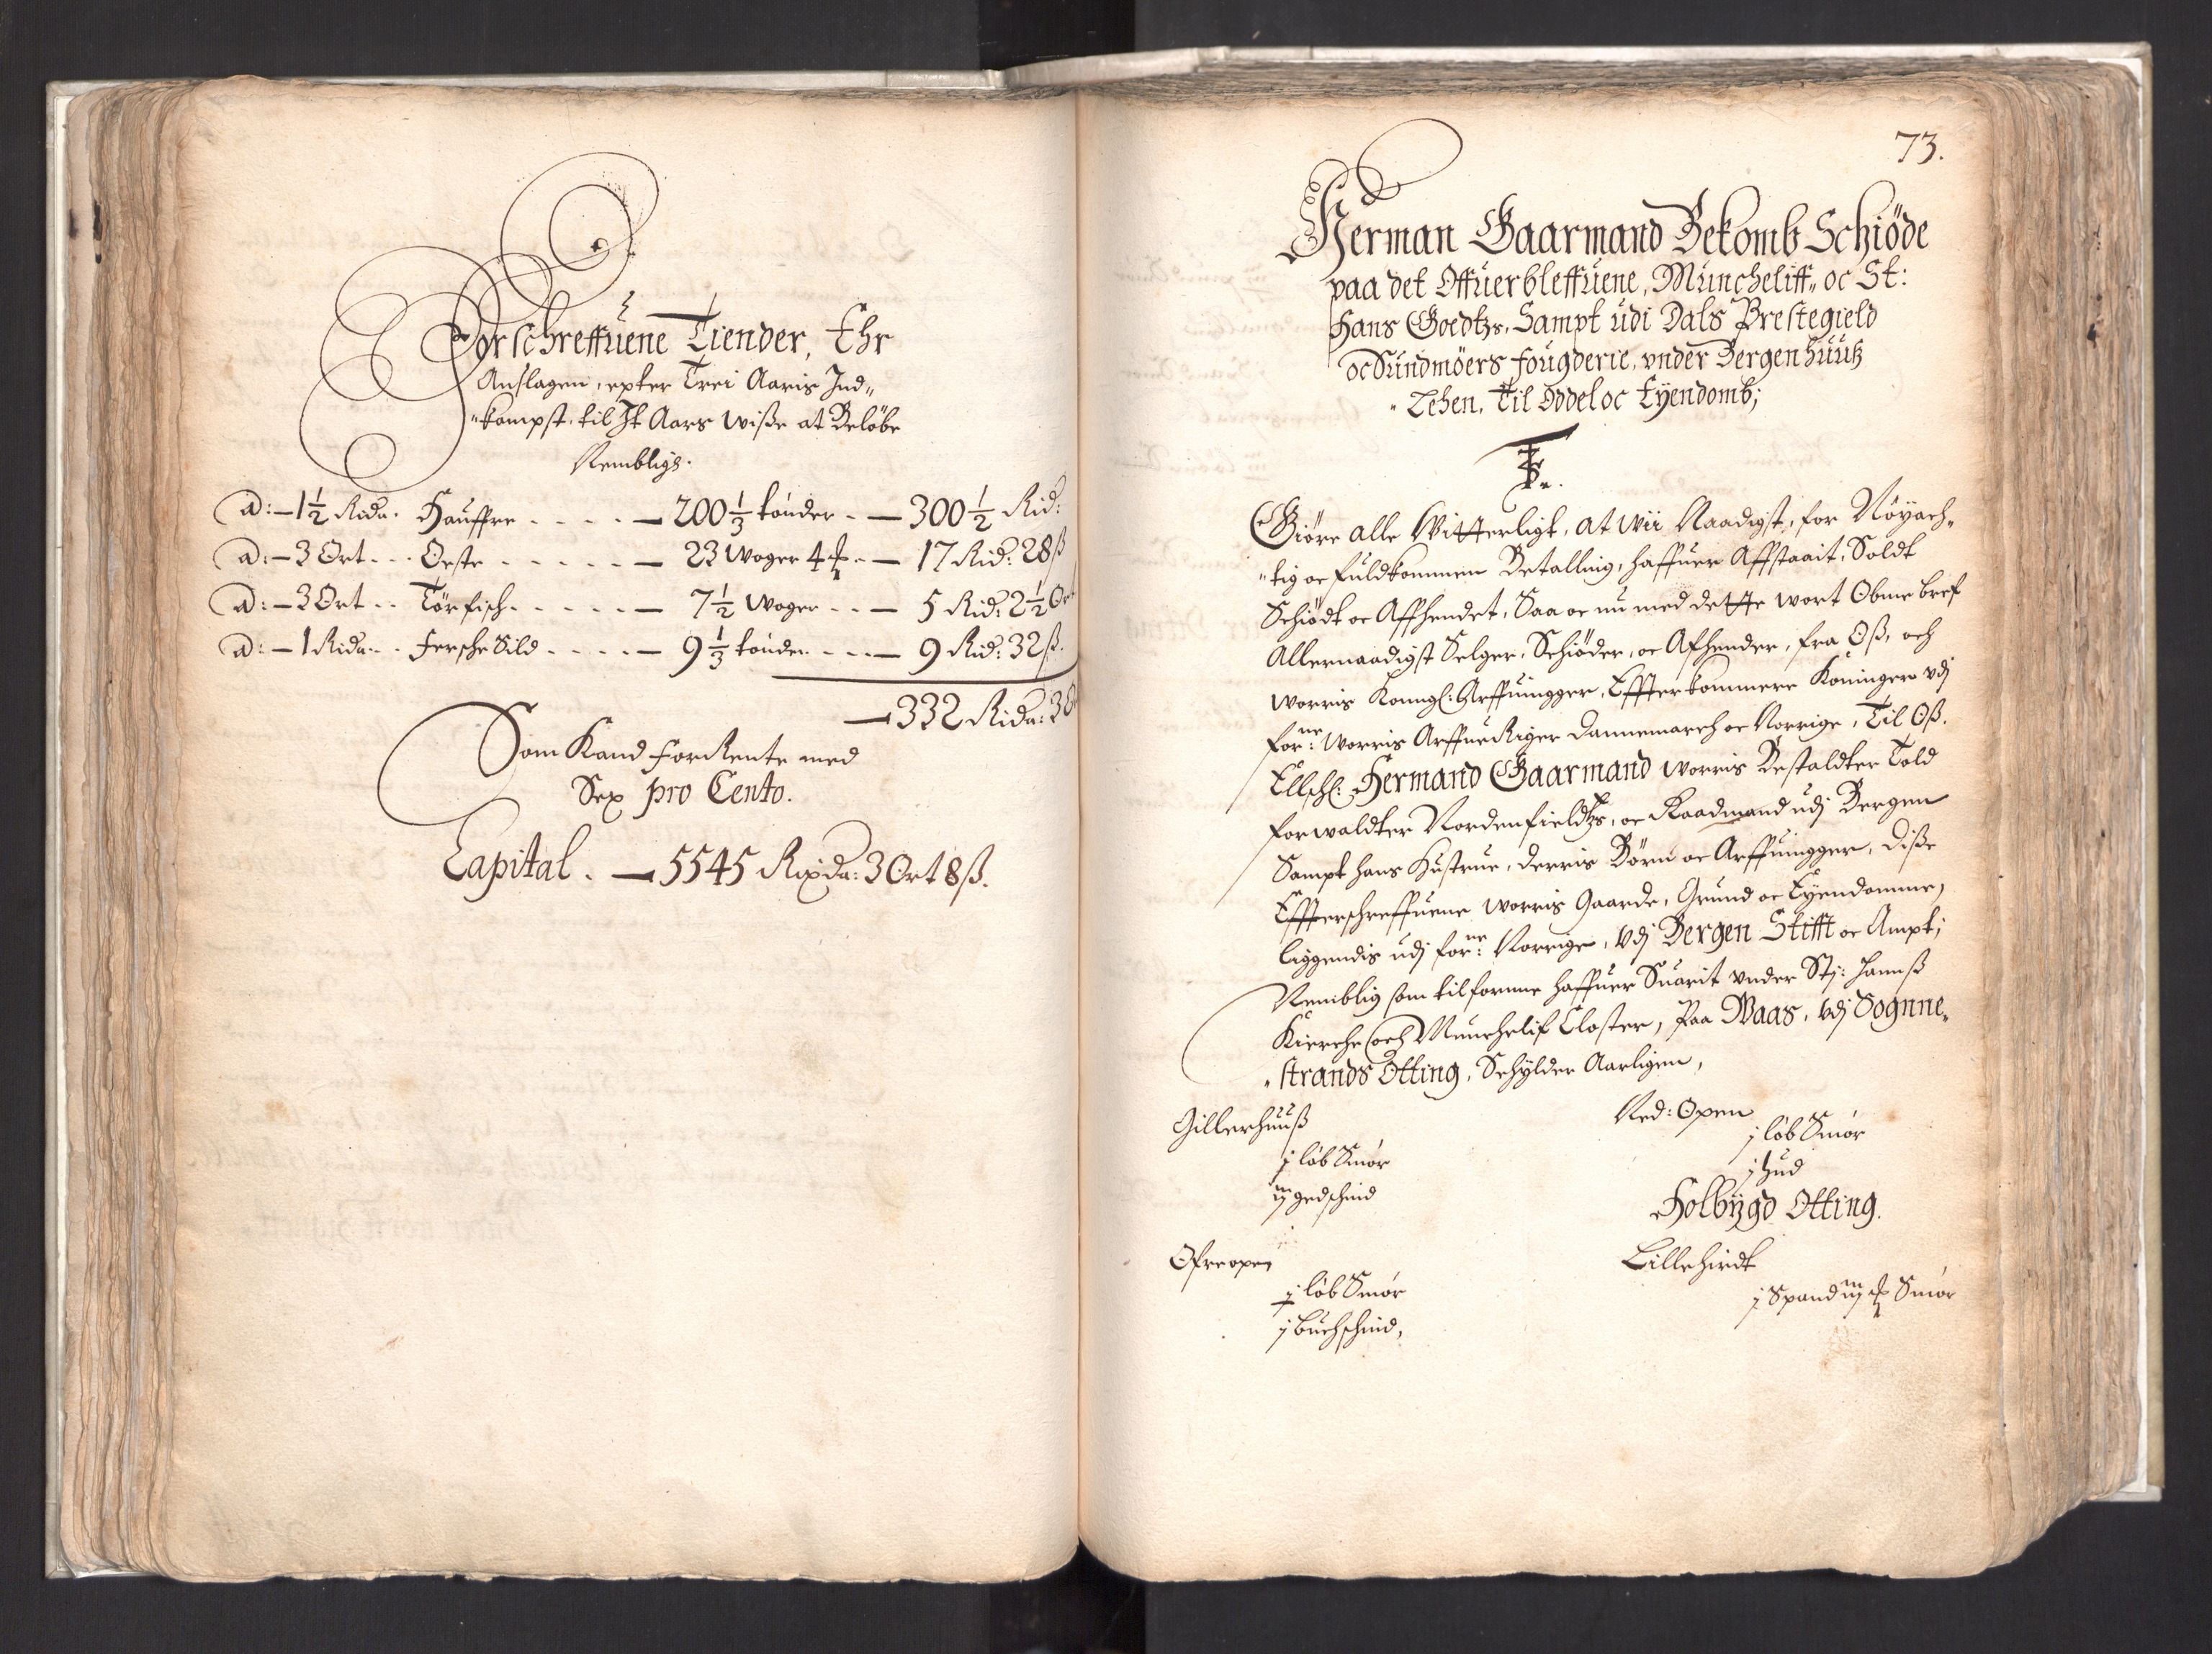 Forschreffuene Tiender, Ehr
Anslagen, epter Trei Aaris Ind„
„kompst, til It Aars wisse at Beløbe
Nembligh.
a: — 1½ Rixdr. Hauffre - - - - — 200⅓ tønder - — 300½ Rid:
a: — 3 Ort - - Oeste - - - - - — 23 Woger 4 - — 17 Rid: 28 ß
a: — 3 Ort - - Törfisch - - - - — 7½ Woger - - — 5 Rid: 2½ Ort
a: — 1 Rixdr - - Fersche Sild - - - - — 9⅓ tønder - - — 9 Rid: 32 ß.
— 332 Rixdr: 3 Ort
Som Kand forRente med
Sex pro Cento.
Capital. — 5545 Rixdr: 3 Ort 8 ß.
73.
Herman Gaarmand Bekomb Schiöde
paa det Offuerbleffuene, Müncheliff„ oc St:
Hans Goedtzs, Sampt udi Dals Prestegield
oc Sundmöers fougderie, vnder Bergenhuuß
„Lehen, Til Oddel oc Eyendomb;
F3.
Giöre alle Witterligt, at wii Naadigst, for Nöyach„
„tig oc fuldkommen Betalling, haffuer Affstaait, Soldt
Schiödt oc Affhendet, Saa oc nu med dette wort Obne bref
Allernaadigst Selger, Schiöder, oc Afhender, fra Oß, och
worris Konngl: Arffuingger, Effterkommere Koninger vdj
forne: worris Arffue Riger Dannemarch oc Norrige, Til Oß.
Ellschl: Hermand Gaarmand worris Bestaldter Told
forwaldter Nordenfieldtzs, oc Raadmand udj Bergen
Sampt hans Hustrue, derris Börn oc Arffuingger, diße
Effterschreffuene worris Gaarde, Grund oc Eyendomme,
liggendis udj forne: Norrige, Vdj Bergen Stifft oc Ampt;
Nemblig som tilforne haffuer Suarit vnder Stj: Hannß
Kierche och Munchelif Closter, Paa Waas, vdj Sognne„
„strands Otting, Schylder Aarligen,
Gillerhuuß
j löb Smör
iij gedschind
Ofreopen
j löb Smör
j buchschind,
Ned: Open
j löb Smör
j hud
Holbygd Otting.
Lillehirdt
j Spand iij Smör